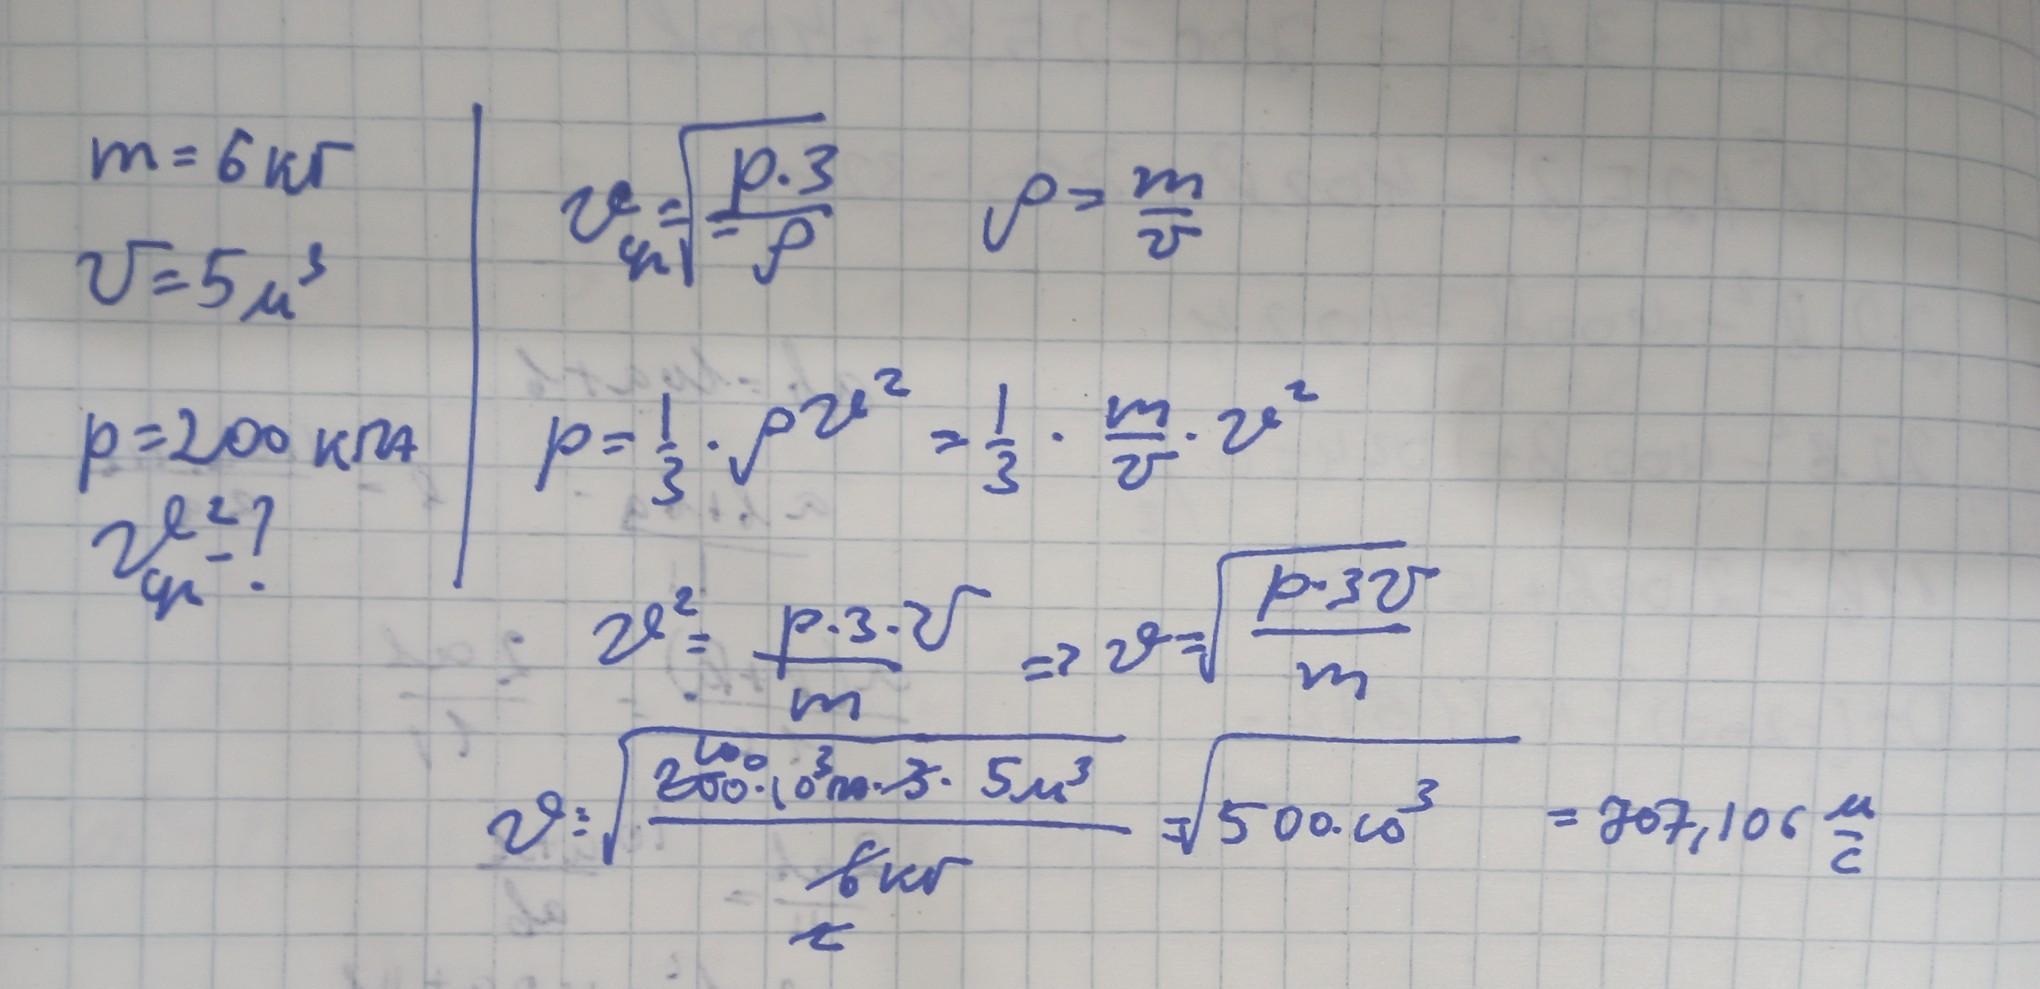 m = 6 кг
V = 5 м³
p = 200 кПа
v² - ?
v = √(p · 3 / ρ)    ρ = m / V
p = 1/3 · ρ v² = 1/3 · m/V · v²
v² = p · 3 · V / m => v = √(p · 3V / m)
v = √(200 · 10³ Па · 3 · 5 м³ / 6 кг) = √(500 · 10³) = 707,106 м/с
100
2